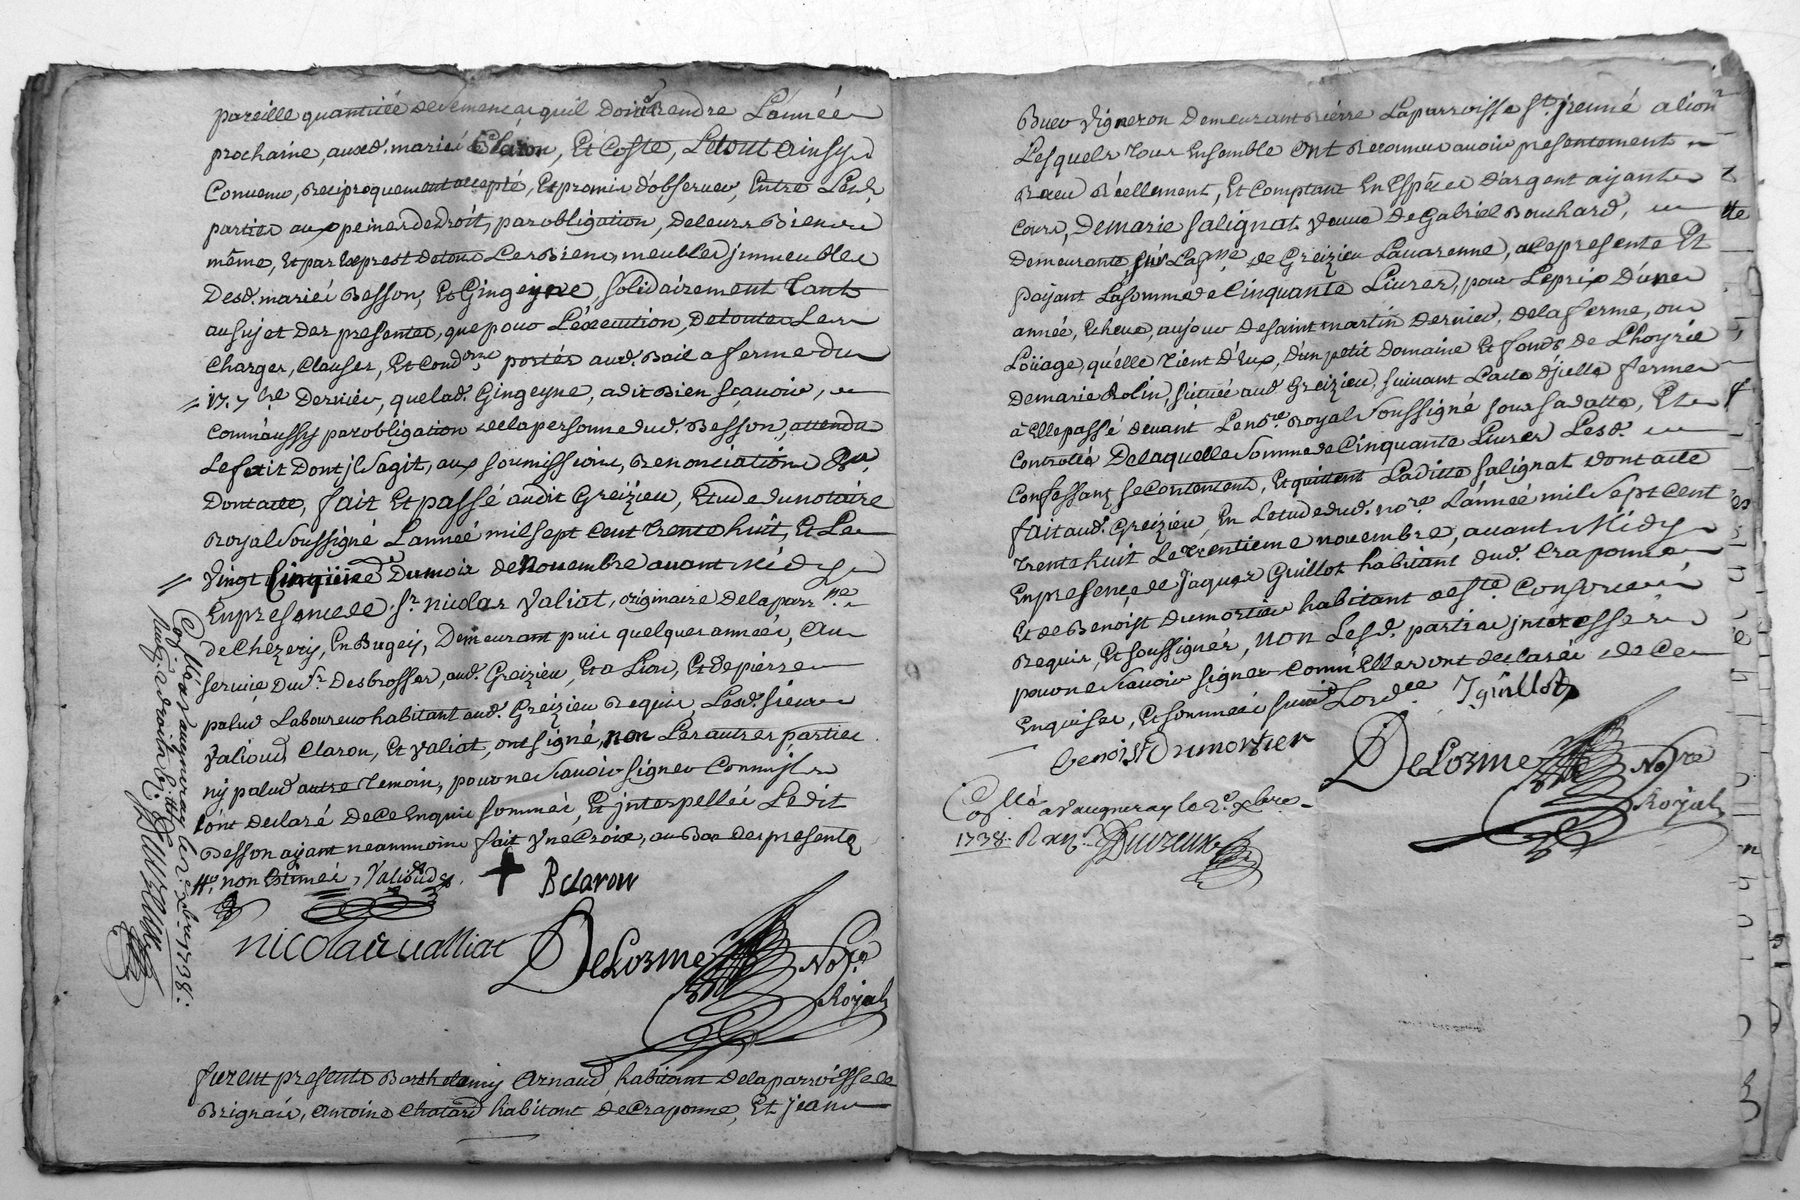 pareille quantitée de Semence quil doivt Rendre L'année
prochaine, auxd. mariés Claron, Et Coste, Letout Ainsy
Convenu, Reciproquement accepté, Et promis d'observer, Entre Lesd.
parties aux peines de droit, par obligation, de leurs Biens
même, Et par Exprest de tous Les Biens, meubles jmmeubles
Desd. mariés Besson, Et Gingeyne, Solidairement Tant
au sujet des presentes, que pour L'éxecution, de toutes Les
Charges, Clauses, Et Condons portés aud. Bail a ferme du
17. 7bre Dernier, que lad. Gingeyne, a dit Bien sçavoir,
Comm'aussy par obligation de la personne dud. Besson, attendu
Le fait Dont jl s'agit, aux soumissions, Renonciations &a,
Dont acte, fait Et passé audit Greizieu, Etude du notaire
Royal Soussigné L'année mil sept cent trente huit, Et Le
Vingt Cinqiême Du mois de Novembre avant Midy
En presence de Sr. nicolas Valiat, originaire de la parrsse
de Chezery, En Bugey, Demeurant puis quelques année, Au
service du Sr. Desbrosses, aud. Greizieu, Et a Lion, Et de pierre
palud Laboureur habitant aud. Greizieu Requis, Lesd. sieurs
Valioud, Claron, Et Valiat, ont signé, non Les autres parties
ny palud autre Temoin, pour ne Scavoir signer Comm'jls
l'ont declaré de ce Enquis sommés, Et jnterpellés Ledit
Besson ayant neammoins fait Vne Croix, au Bas des presentes
non Estimés, Valioud
B claron
nicolas valliat
DeLorme Nore
Royal
Collé a Vaugneray le 2e xbre 1738.
Duvzeux
furent presents Barthelemy Arnaud habitant de la parroisse de
Brignais, Antoine Chatard habitant de Craponne, Et Jean
Buer Vigneron Demeurant Riérre La parroisse St. jrenné a lion
Lesquels Tous Ensemble Ont Reconnus avoir presentement
Receu Réellement, Et Comptant En Espéces d'argent ayant
Cours, De marie Salignat Veuve de Gabriel Bouchard,
demeurante, sur La psse de Greizieu Lavarenne, a ce presente Et
payant La somme de Cinquante Livres, pour Le prix d'une
année, Echeue, au jour de saint martin dernier, de la ferme, ou
Loüage, qu'elle Tient d'Eux, d'un petit domaine Et fonds de L'hoyrie
de marie Rolin, Située aud. Greizieu, suivant L'acte d'jcelle ferme
à Elle passé devant Le nore Royal Soussigné sous sa datte, Et
Controllé De laquelle Somme de Cinquante Livres Lesd.
Confessants se Contentent, Et quittent Laditte Salignat dont acte
fait aud. Greizieu, En Letude dud. nore. L'année mil Sept cent
trente huit Le trentieme novembre, avant Midy
En presençe de Jaques Guillot habitant dud. Craponne
Et de Benoist Dumortier habitant a Ste Consorce
Requis, Et soussignés, non Lesd. parties jnteressées
pour ne Scavoir signer Comm'Elles ont declarés de ce
Enquises, Et sommées suivt. Lordce
Jguillot
benoist Dumortier
DeLorme Nore
Royal
Collé a Vaugneray le 2e xbre
1738.
Duvzeux